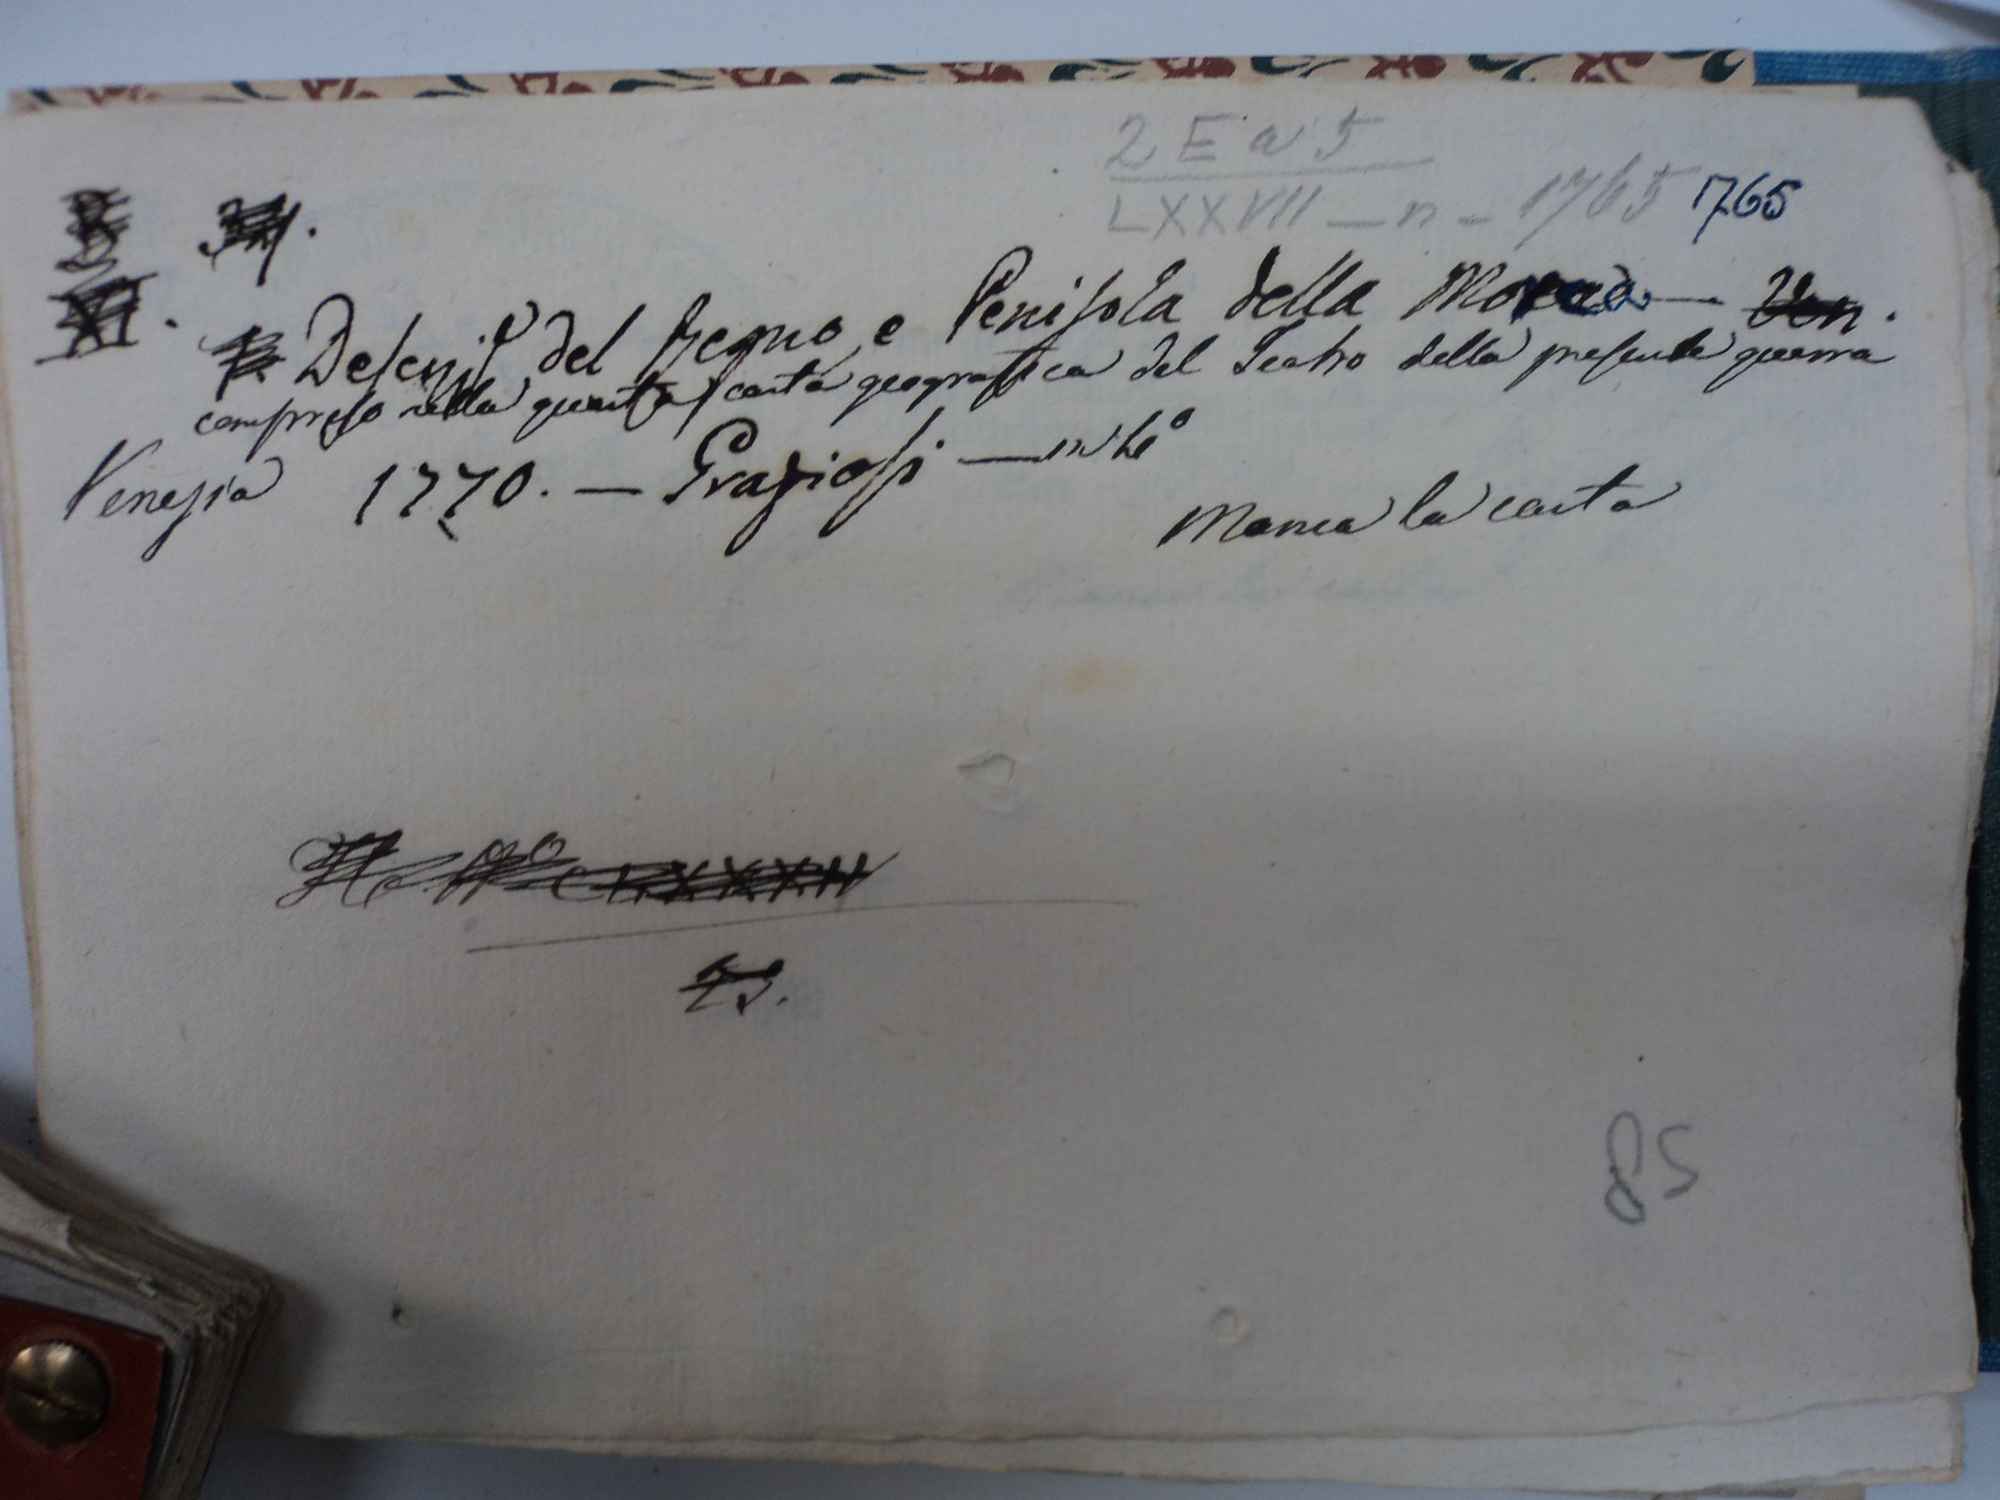 2 E a 5
LXXVII — n - 1765 1765
Descriz.e del Regno, e Penisola della Morea — Ven.
compreso nella quarta carta geografica del Teatro della presente guerra
Venezia 1770. — Graziosi — in 4°
Manca la carta
85